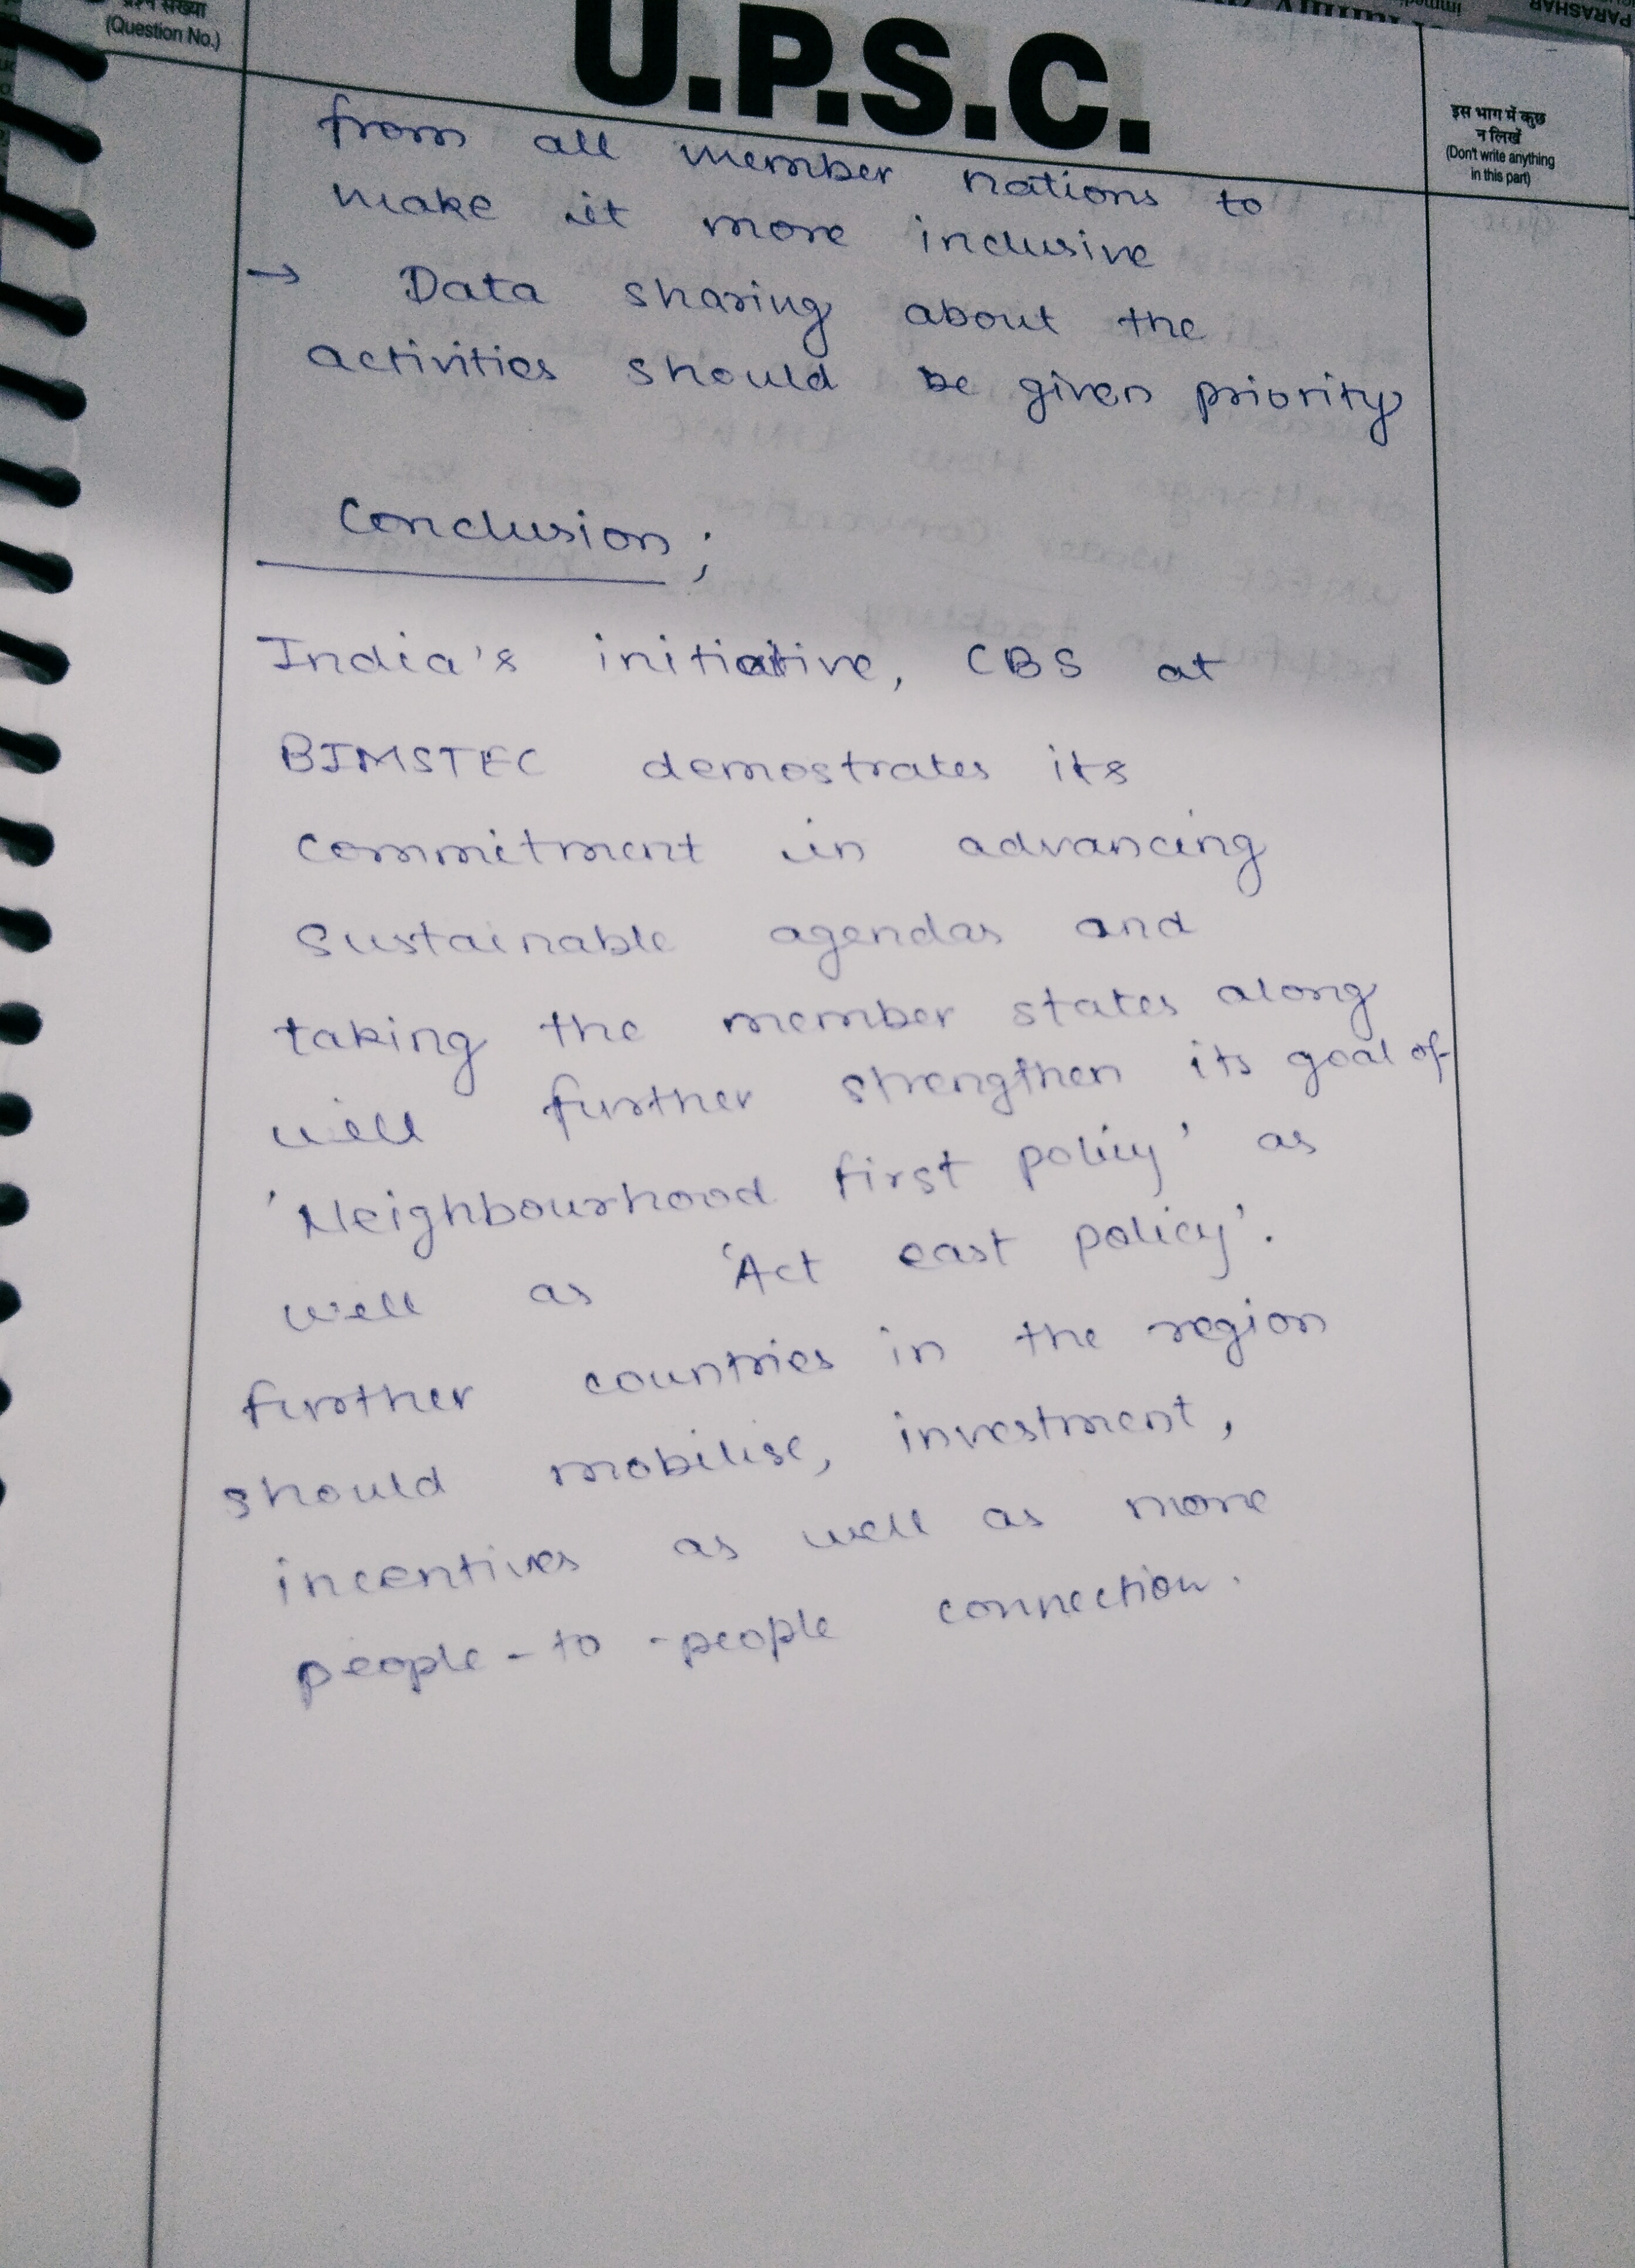 प्रश्न संख्या
(Question No.)
U.P.S.C.
इस भाग में कुछ
न लिखें
(Don't write anything
in this part)
PARASHAR
from all member nations to
make it more inclusive
→ Data sharing about the
activities should be given priority
Conclusion;
India's initiative, CBS at
BIMSTEC demostrates its
commitment in advancing
sustainable agendas and
taking the member states along
will further strengthen its goal of
'Neighbourhood first policy' as
well as 'Act east policy'.
further countries in the region
should mobilise, investment,
incentives as well as more
people-to-people connection.